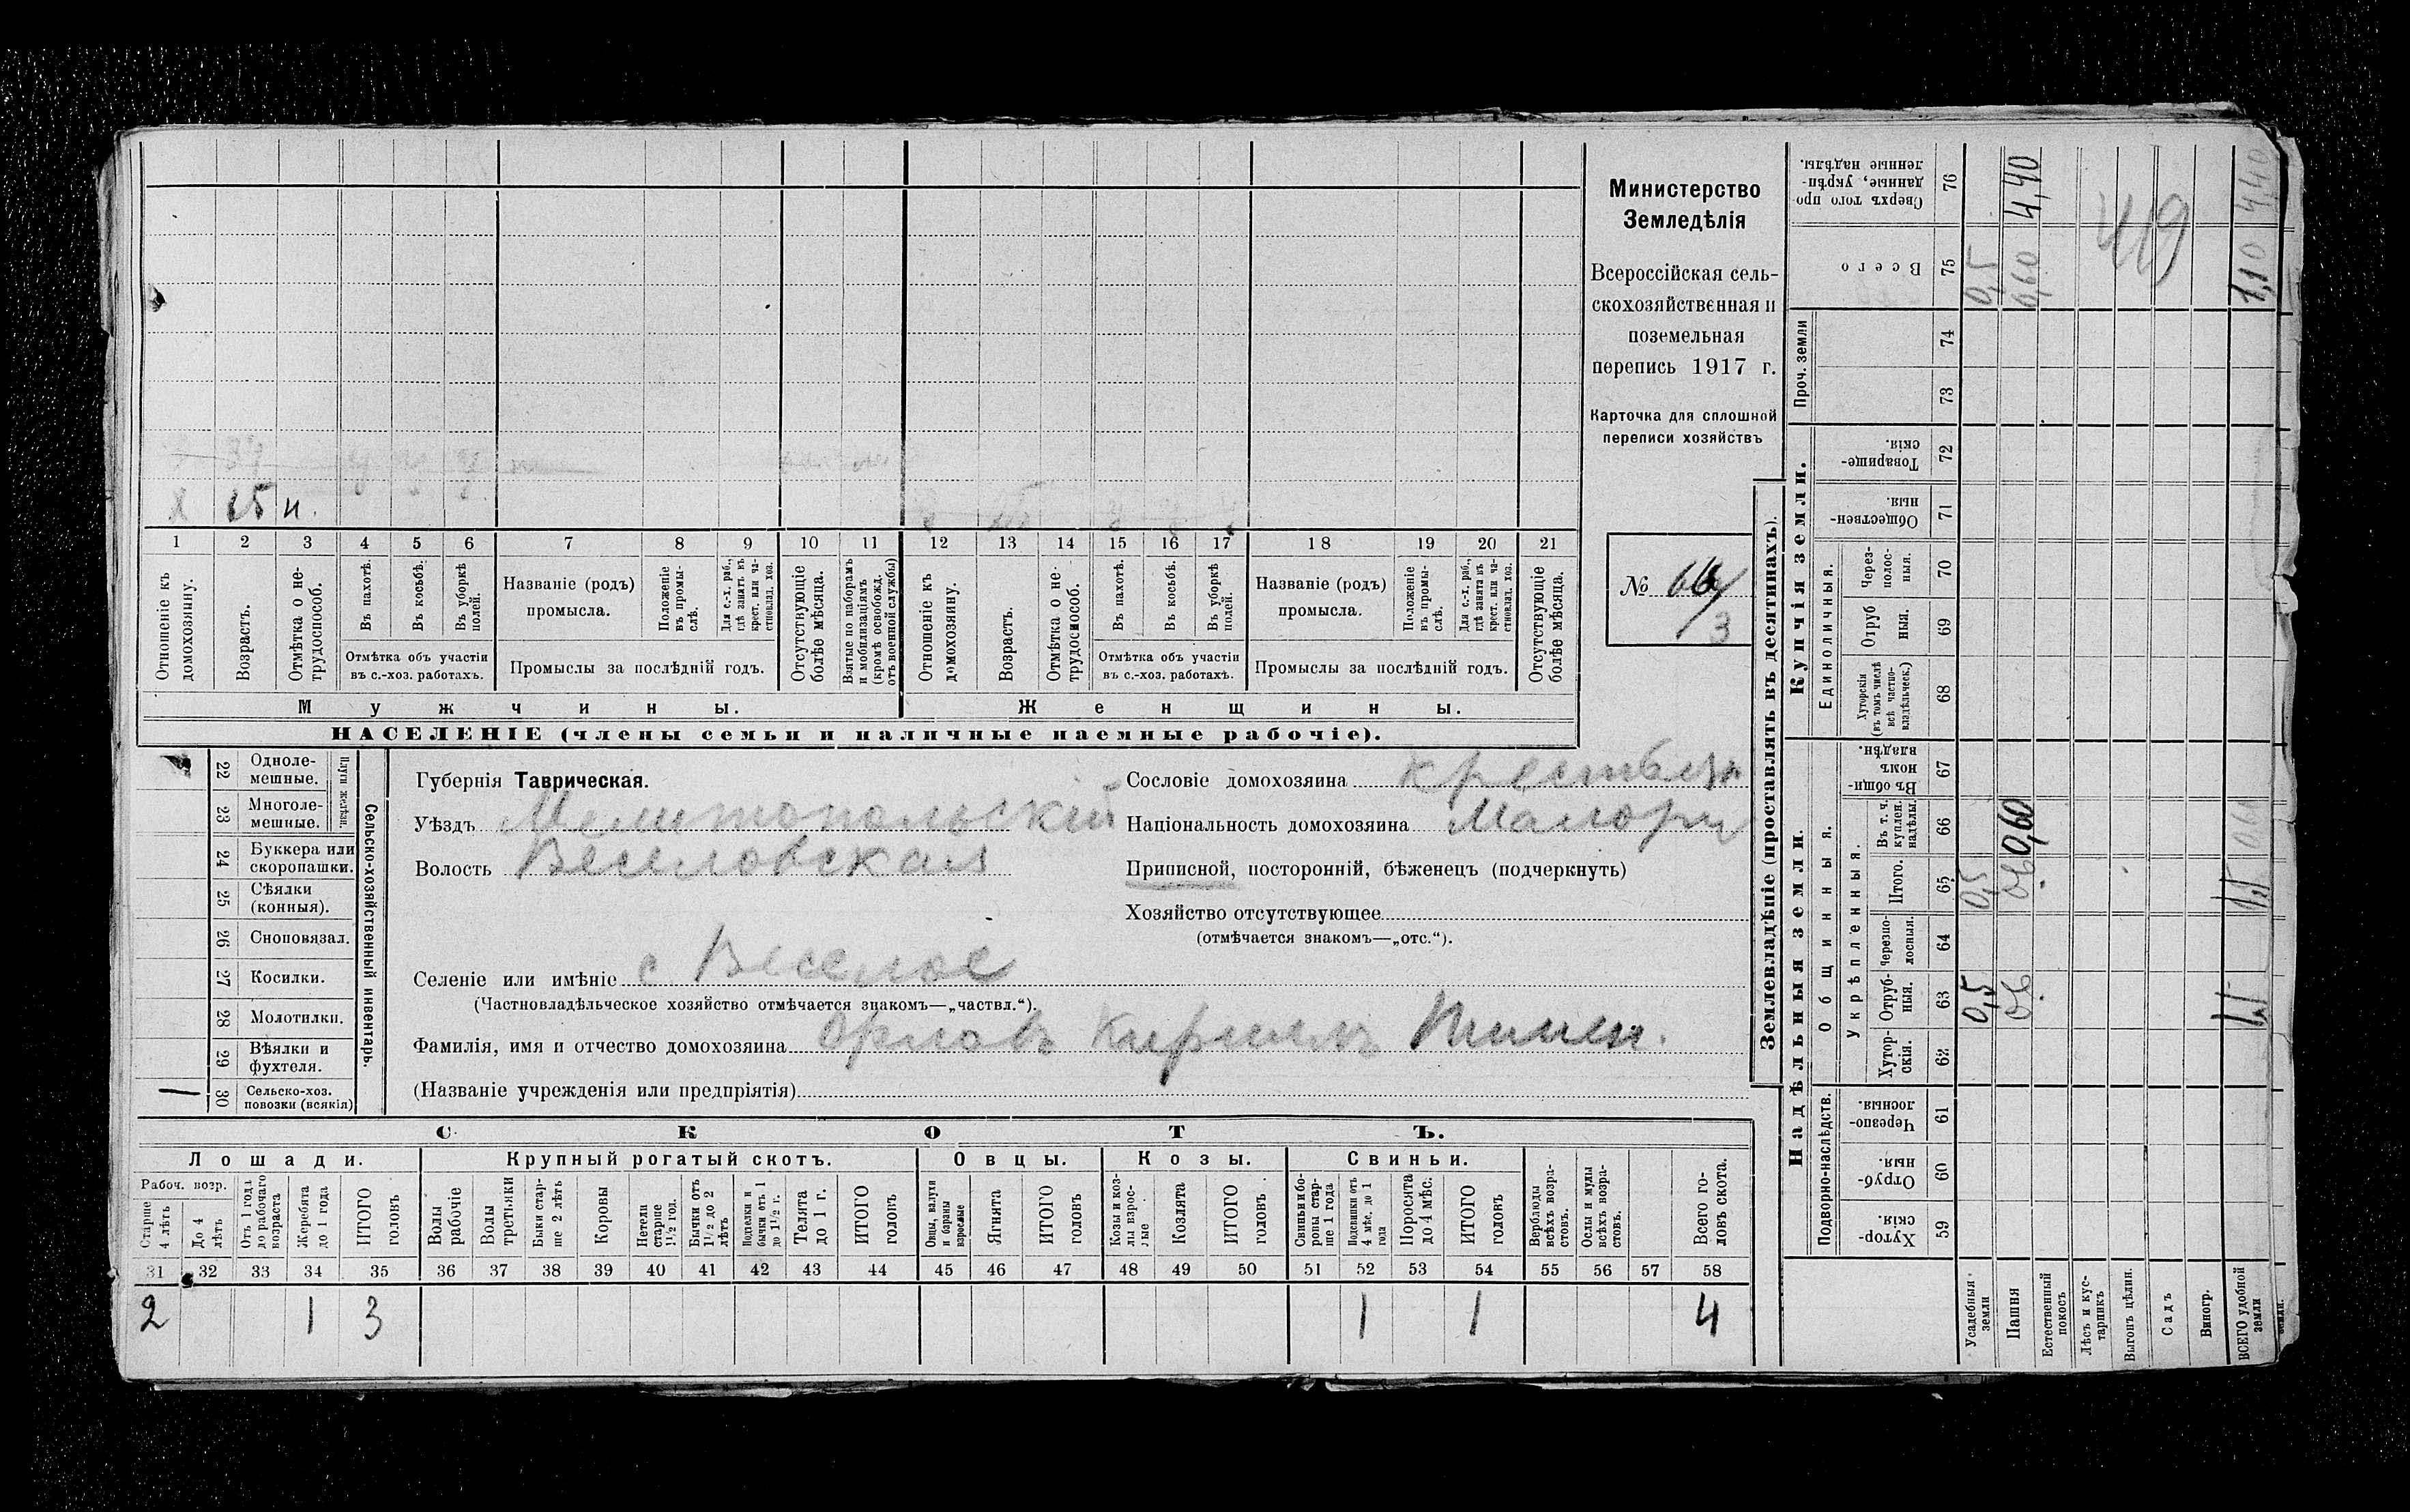 Министерство
Земледѣлія
Всероссійская сель-
скохозяйственная и
поземельная
перепись 1917 г.
Карточка для сплошной
переписи хозяйствъ
№
3
15 н.
1 2 3 4 5 6 7 8 9 10 11 12 13 14 15 16 17 18 19 20 21
Отношеніе къ домохозяину.
Возрастъ.
Отмѣтка о не-трудоспособ.
Въ пахотѣ.
Въ косьбѣ.
Въ уборкѣ полей.
Отмѣтка объ участіи
въ с.-хоз. работахъ.
Названіе (родъ)
промысла.
Положеніе въ промы-слѣ.
Для с.-х. раб., гдѣ занятъ въ крест. или ча-стновлад. хоз.
Промыслы за послѣдній годъ.
Отсутствующіе болѣе мѣсяца.
Взятые по наборамъ и мобилизаціямъ (кромѣ освобожд. отъ военной службы)
Отношеніе къ домохозяину.
Возрастъ.
Отмѣтка о не-трудоспособ.
Въ пахотѣ.
Въ косьбѣ.
Въ уборкѣ полей.
Отмѣтка объ участіи
въ с.-хоз. работахъ.
Названіе (родъ)
промысла.
Положеніе въ промы-слѣ.
Для с.-х. раб., гдѣ занята въ крест. или ча-стновлад. хоз.
Промыслы за послѣдній годъ.
Отсутствующіе болѣе мѣсяца.
Мужчины.
Женщины.
НАСЕЛЕНІЕ (члены семьи и наличные наемные рабочіе).
22 Одноле-мешные.
23 Многоле-мешные.
Плуги желѣзн.
24 Буккера или скоропашки.
25 Сѣялки (конныя).
26 Сноповязал.
27 Косилки.
28 Молотилки.
29 Вѣялки и фухтеля.
1 30 Сельско-хоз. повозки (всякія)
Сельско-хозяйственный инвентарь.
Губернія Таврическая.
Уѣздъ Мелитопольскій
Волость Веселовская
Селеніе или имѣніе с Веселое
(Частновладѣльческое хозяйство отмѣчается знакомъ—„частвл.“).
Фамилія, имя и отчество домохозяина Орловъ Кириллъ Тимоф.
(Названіе учрежденія или предпріятія)
Сословіе домохозяина крестьян
Національность домохозяина Малорос
Приписной, посторонній, бѣженецъ (подчеркнуть)
Хозяйство отсутствующее
(отмѣчается знакомъ—„отс.“).
СКОТЪ.
Лошади.
Крупный рогатый скотъ.
Овцы.
Козы.
Свиньи.
Рабоч. возр.
Старше 4 лѣтъ
До 4 лѣтъ
Отъ 1 года до рабочаго возраста
Жеребята до 1 года
ИТОГО головъ
Волы рабочіе
Волы третьяки
Быки стар-ше 2 лѣтъ
Коровы
Нетели старше 1½ год.
Бычки отъ 1½ до 2 лѣтъ
Подтелки и бычки отъ 1 до 1½ г.
Телята до 1 г.
ИТОГО головъ
Овцы, валухи и бараны взрослые
Ягнята
ИТОГО головъ
Козы и коз-лы взрос-лые
Козлята
ИТОГО головъ
Свиньи и бо-ровы стар-ше 1 года
Подсвинки отъ 4 мѣс. до 1 года
Поросята до 4 мѣс.
ИТОГО головъ
Верблюды всѣхъ возра-стовъ.
Ослы и мулы всѣхъ возра-стовъ.
Всего го-ловъ скота.
31 32 33 34 35 36 37 38 39 40 41 42 43 44 45 46 47 48 49 50 51 52 53 54 55 56 57 58
2 1 3 1 1 4
Землевладѣніе (проставлять въ десятинахъ).
Надѣльныя земли.
Купчія земли.
Проч. земли
Подворно-наслѣдств.
Общинныя.
Укрѣпленныя.
Единоличныя.
Сверхъ того про-данные, укрѣп-ленные надѣлы. 76 4,40 4,40
Всего 75 0,5 0,60 1,10
419
74
73
Товарище-скія. 72
Обществен-ныя. 71
Через-полос-ныя. 70
Отруб-ныя. 69
Хуторскія (въ томъ числѣ всѣ частно-владѣльческ.) 68
Въ общи-номъ владѣн. 67
Въ т. ч. куплен. надѣлы. 66 0,60
Итого. 65 0,5
Черезпо-лосныя. 64
Отруб-ныя. 63 0,5
Хутор-скія. 62
Черезпо-лосныя. 61
Отруб-ныя. 60
Хутор-скія. 59
Усадебныя земли
Пашня
Естественный покосъ
Лѣсъ и кус-тарникъ
Выгонъ цѣлин.
Садъ
Виногр.
ВСЕГО удобной земли